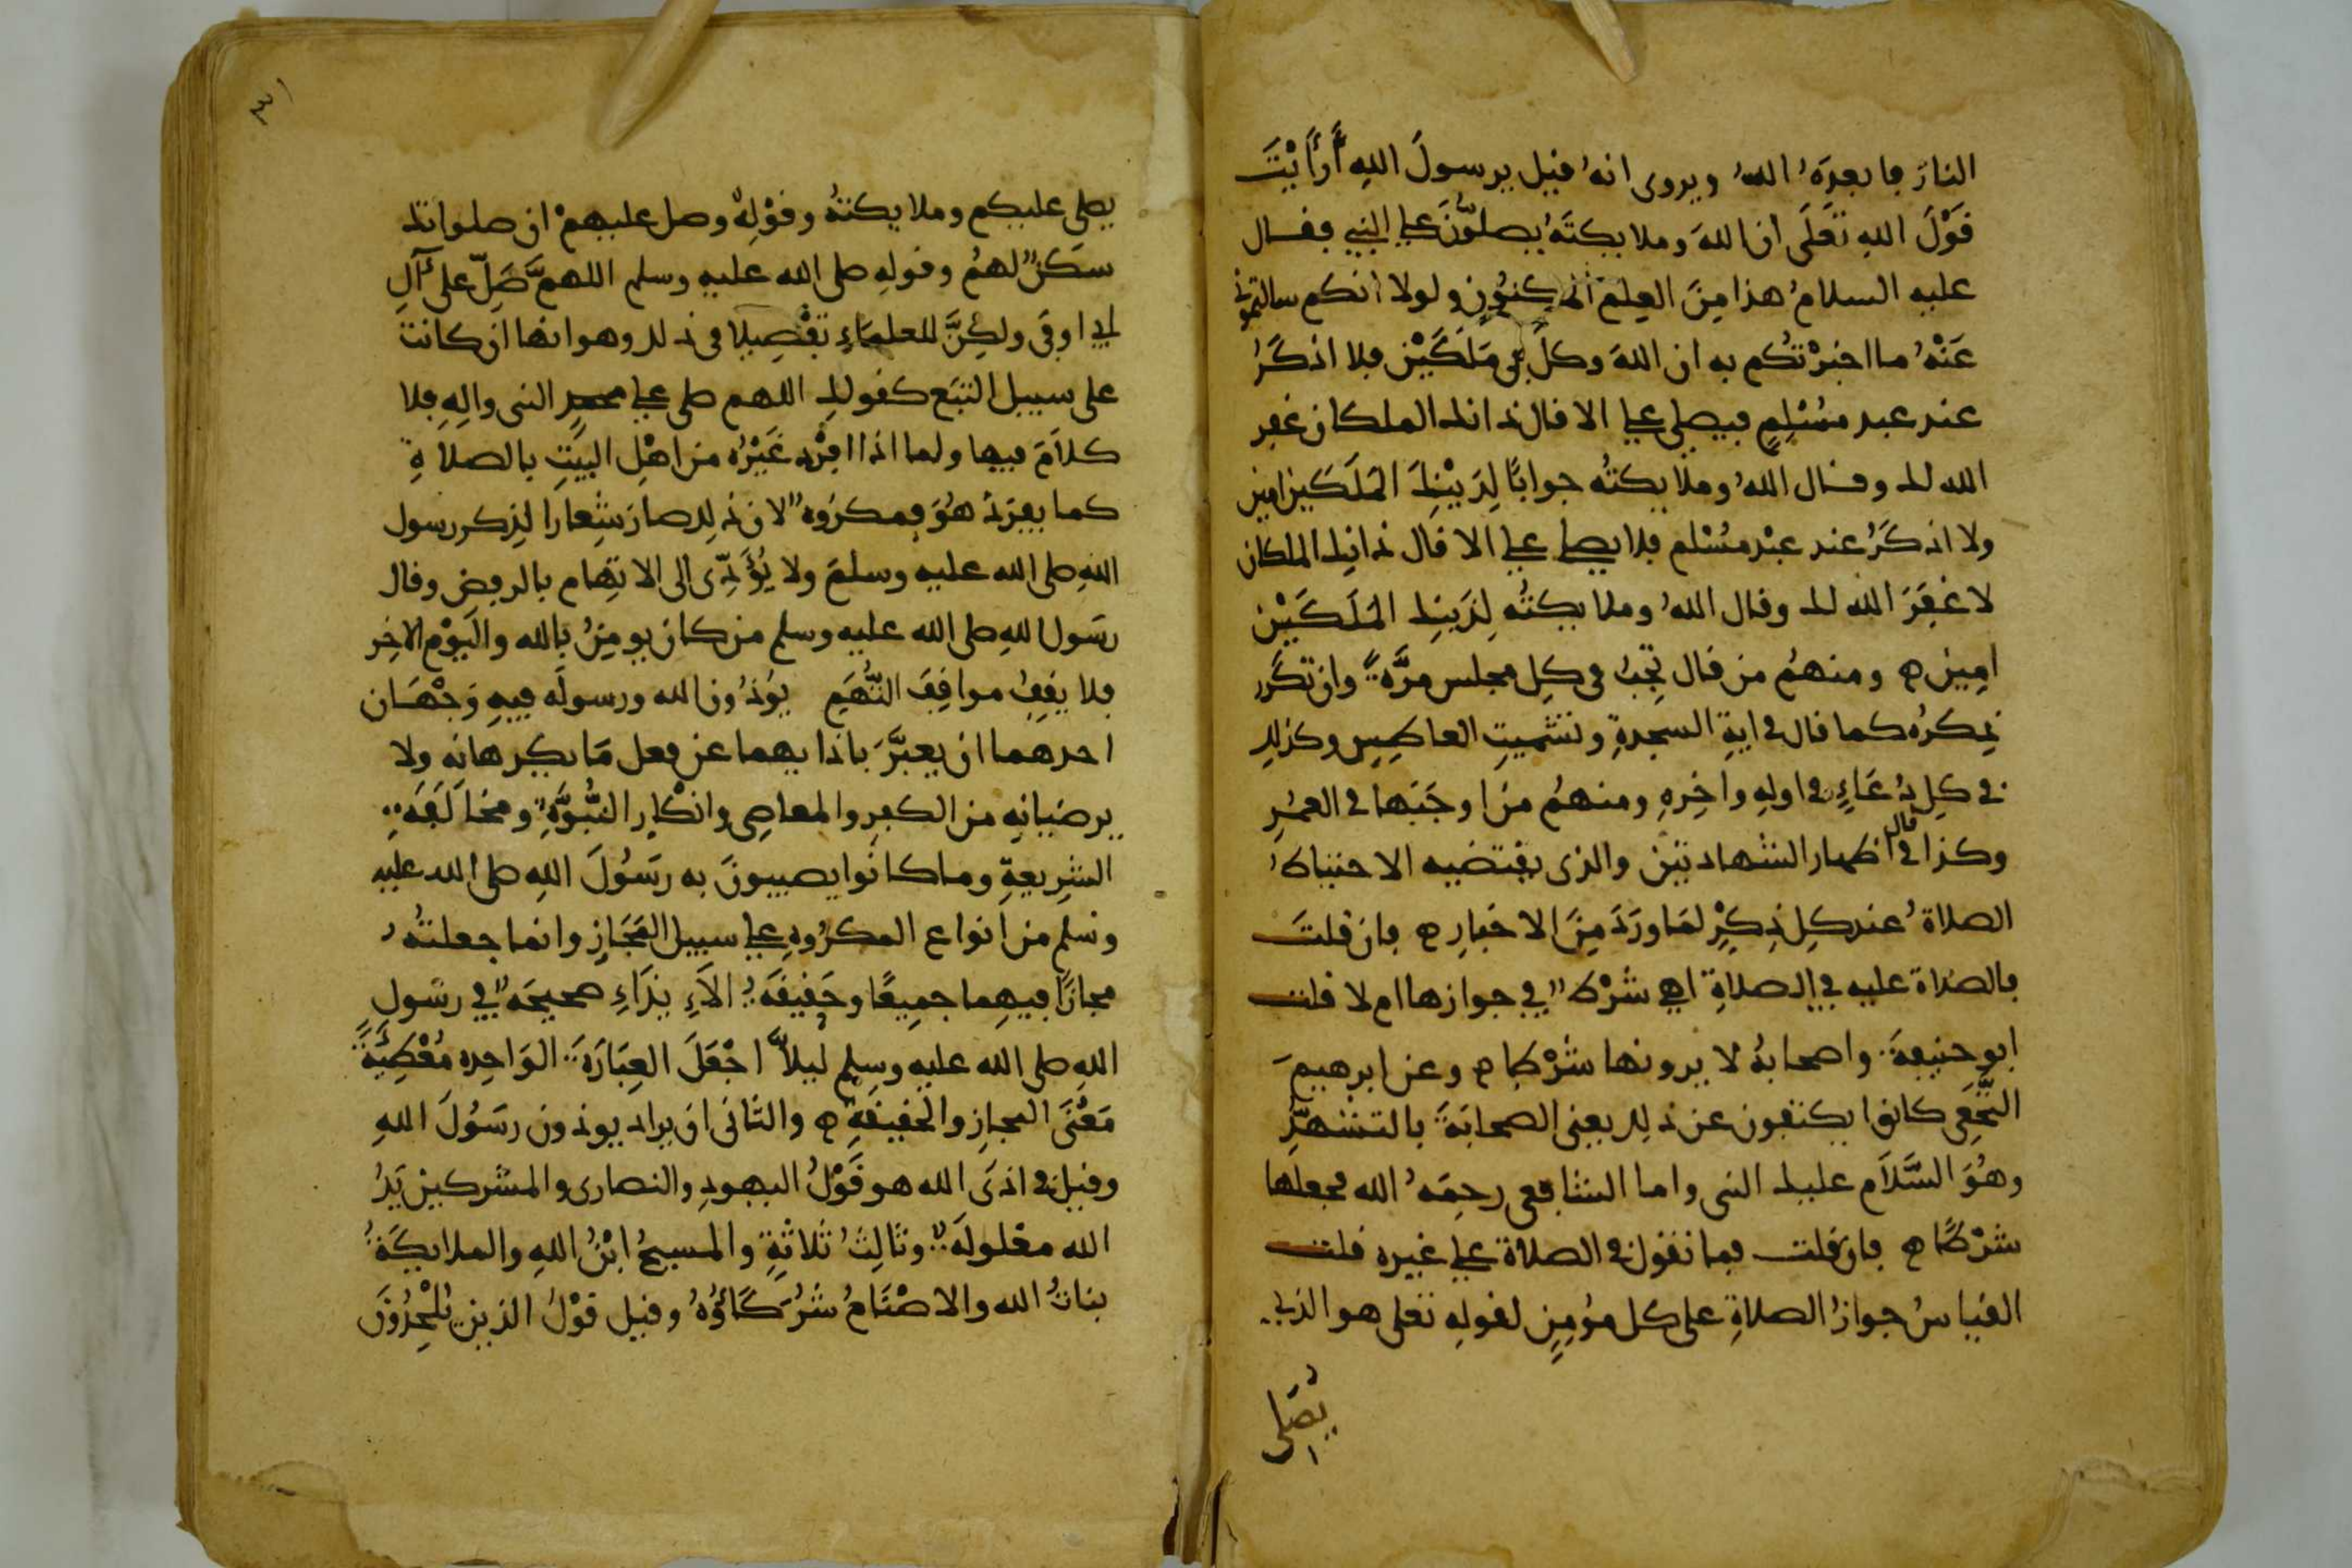 النار فابعده الله ويروى انه قيل يرسول الله أرأيت
قول الله تعلى ان الله وملايكته يصلون على النبي فقال
عليه السلام هذا من العلم المكنون ولولا انكم سالتموني
عنه ما اخبرتكم به ان الله وكل بي ملكين فلا اذكر
عند عبد مسلم فيصلي علي الا قال ذانك الملكان غفر
الله لك وقال الله وملايكته جوابا لذينك الملكين امين
ولا اذكر عند عبد مسلم فلا يصلي علي الا قال ذانك الملكان
لا غفر الله لك وقال الله وملايكته لذينك الملكين
امين ومنهم من قال تجب في كل مجلس مرة وان تكرر
ذكره كما قال في اية السجدة وتشميت العاطس وكذلك
في كل دعاء في اوله واخره ومنهم من اوجبها في العمر
وكذا قال في اظهار الشهادتين والذي يقتضيه الاحتياط
الصلاة عند كل ذكر لما ورد من الاخبار فان قلت
فالصلاة عليه في الصلاة اهي شرط في جوازها ام لا قلت
ابو حنيفة واصحابه لا يرونها شرطا وعن ابرهيم
النخعي كانوا يكتفون عن ذلك يعني الصحابة بالتشهد
وهو السلام عليك النبي واما الشافعي رحمه الله فجعلها
شرطا فان قلت فما تقول في الصلاة على غيره قلت
القياس جواز الصلاة على كل مؤمن لقوله تعلى هو الذي
يصلي
٣١
يصلي عليكم وملايكته وقوله وصل عليهم ان صلواتك
سكن لهم وقوله صلى الله عليه وسلم اللهم صل على آل
ابي اوفى ولكن للعلماء تفصيلا في ذلك وهو انها ان كانت
على سبيل التبع كقولك اللهم صلى على محمد النبي واله فلا
كلام فيها واما اذا افرد غيره من اهل البيت بالصلاة
كما يفرد هو فمكروه لان ذلك صار شعارا لذكر رسول
الله صلى الله عليه وسلم ولا يؤدي الى الاتهام بالرفض وقال
رسول الله صلى الله عليه وسلم من كان يومن بالله واليوم الاخر
فلا يقف مواقف التهم يوذون الله ورسوله فيه وجهان
احدهما ان يعبر باذايهما عن فعل ما يكرهانه ولا
يرضيانه من الكفر والمعاصي وانكار النبوة ومخالفة
الشريعة وما كانوا يصيبون به رسول الله صلى الله عليه
وسلم من انواع المكروه على سبيل المجاز وانما جعلته
مجازا فيهما جميعا وحقيقة الايذاء صحيحة في رسول
الله صلى الله عليه وسلم ليلا اجعل العبارة الواحده معطية
معنى المجاز والحقيقة والثاني ان يراد يوذون رسول الله
وقيل في اذى الله هو قول اليهود والنصارى والمشركين يد
الله مغلولة وثالث ثلاثة والمسيح ابن الله والملايكة
بنات الله والاصنام شركاؤه وقيل قول الذين يلحدون